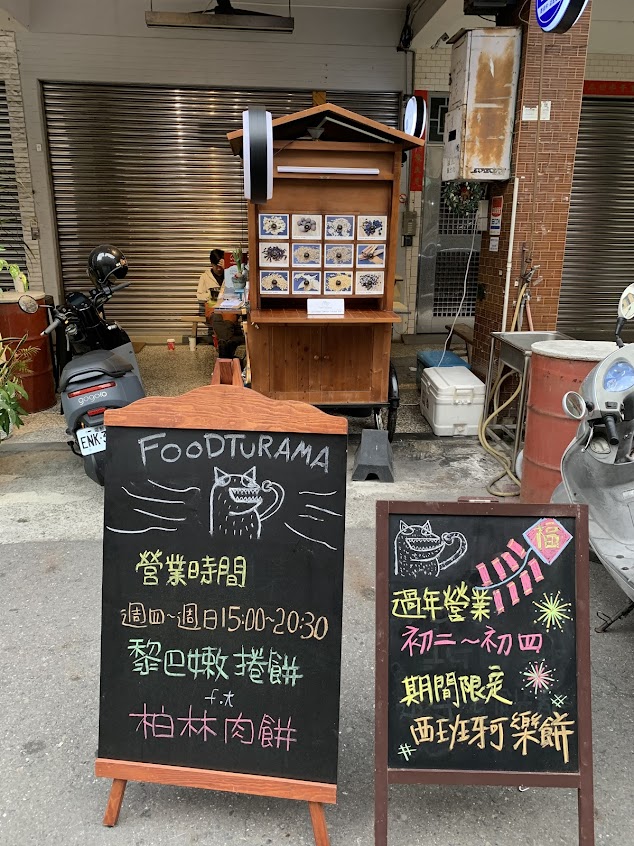 FOODTURAMA
營業時間
週四~週日15:00~20:30
黎巴嫩捲餅
f.t
柏林肉餅
福
過年營業
初二~初四
期間限定
西班牙樂餅
gogoro